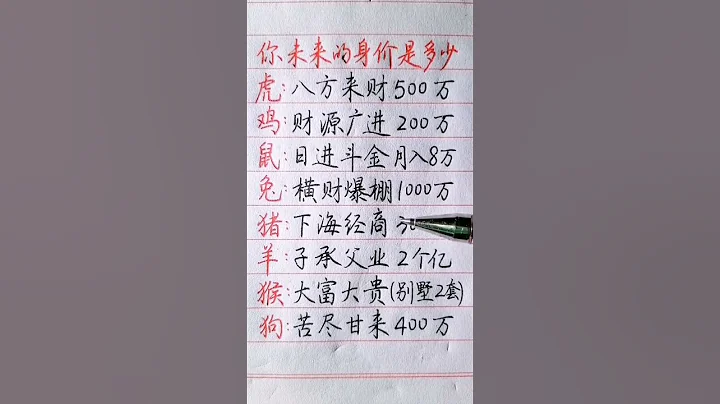 你未来的身价是多少
虎:八方来财500万
鸡:财源广进200万
鼠:日进斗金月入8万
兔:横财爆棚1000万
猪:下海经商
羊:子承父业2个亿
猴:大富大贵(别墅2套)
狗:苦尽甘来400万